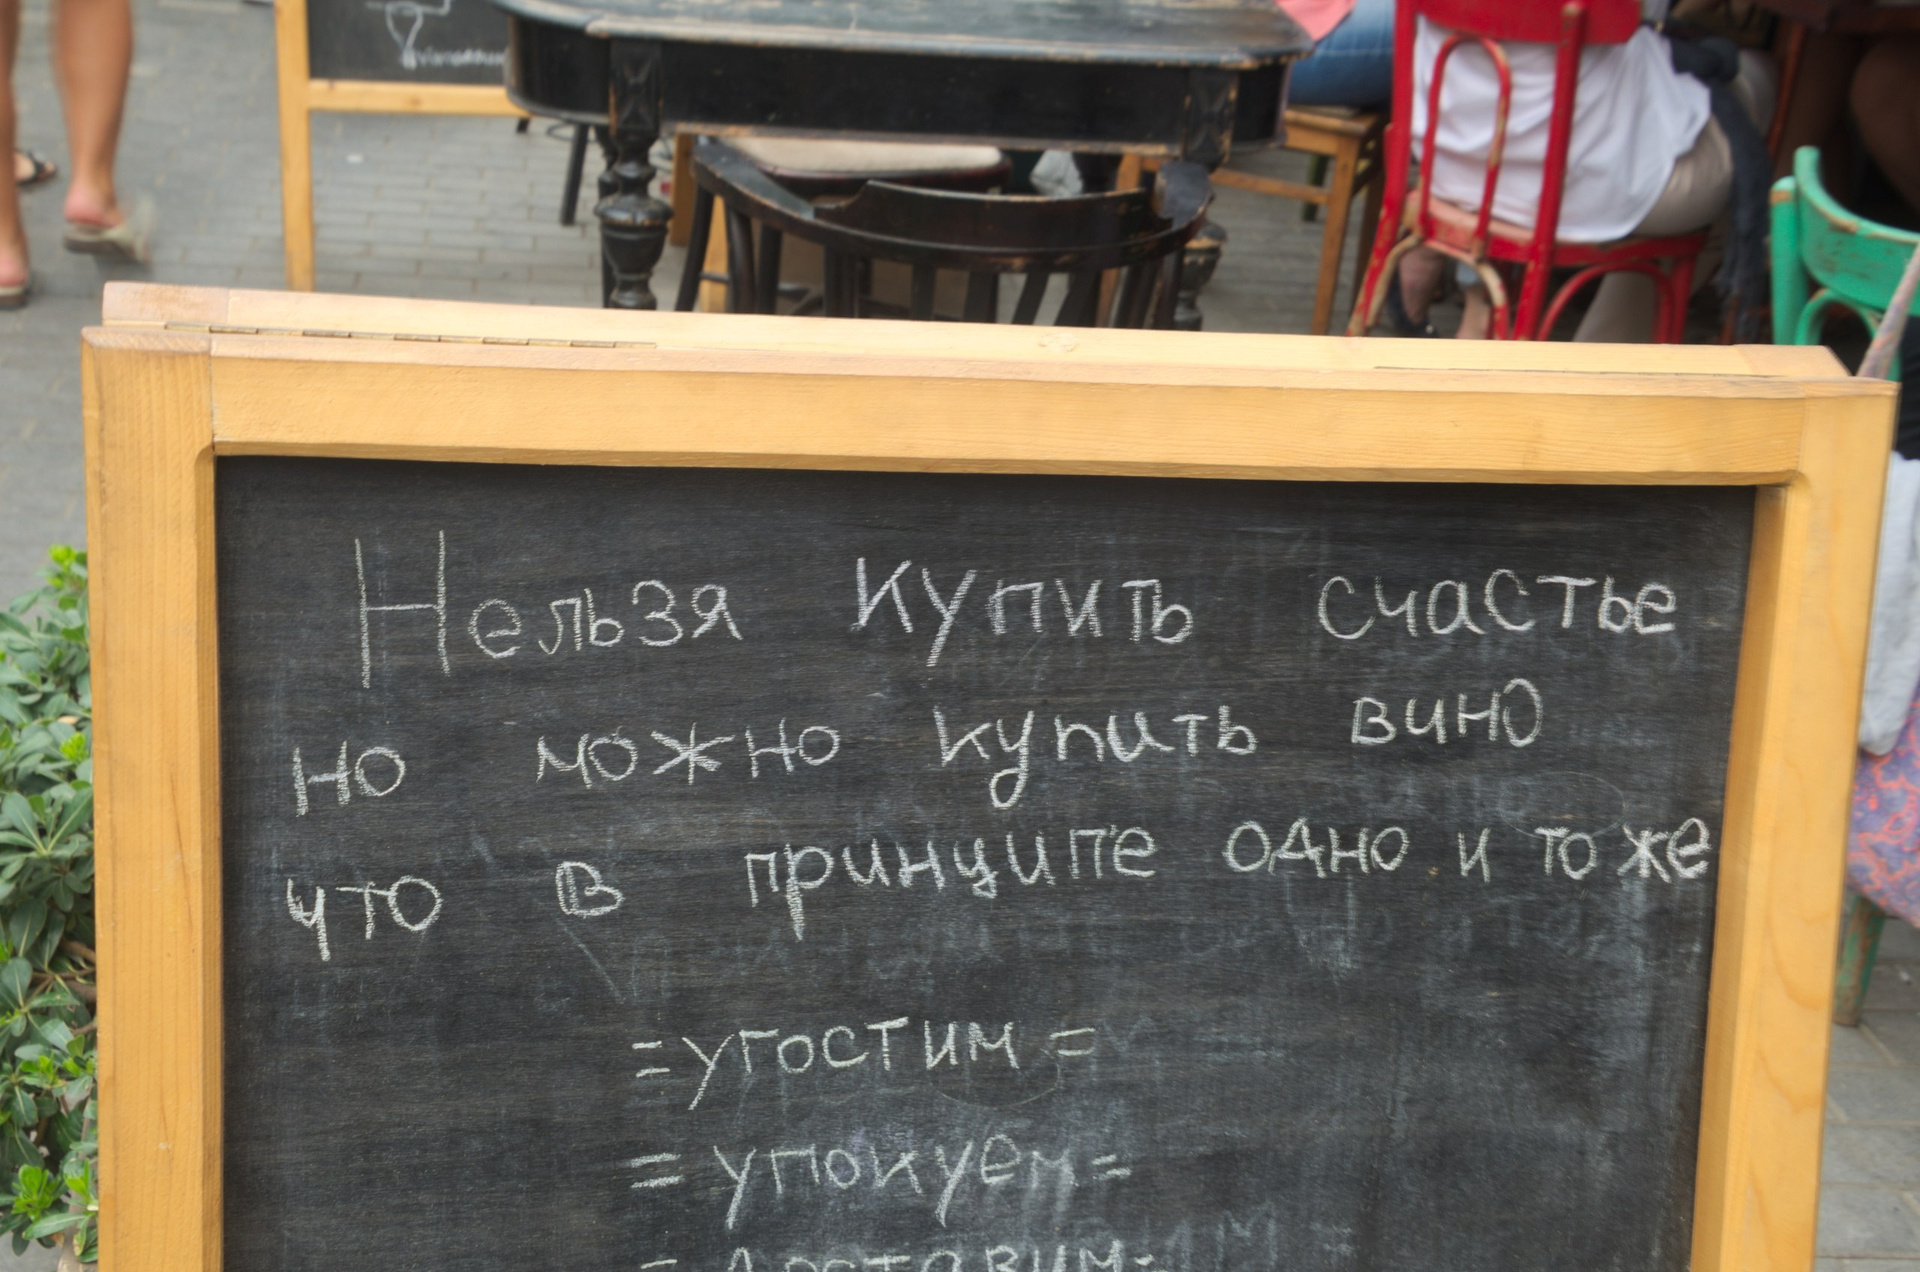 Нельзя купить счастье
но можно купить вино
что в принципе одно и то же
=угостим=
=упокуем=
=доставим=